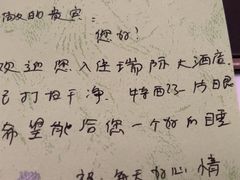 敬的贵宾:
您好!
欢迎您入住瑞际大酒店,
已打扫干净.特留了一片眼
希望能给您一个好的睡
祝:每天好心情